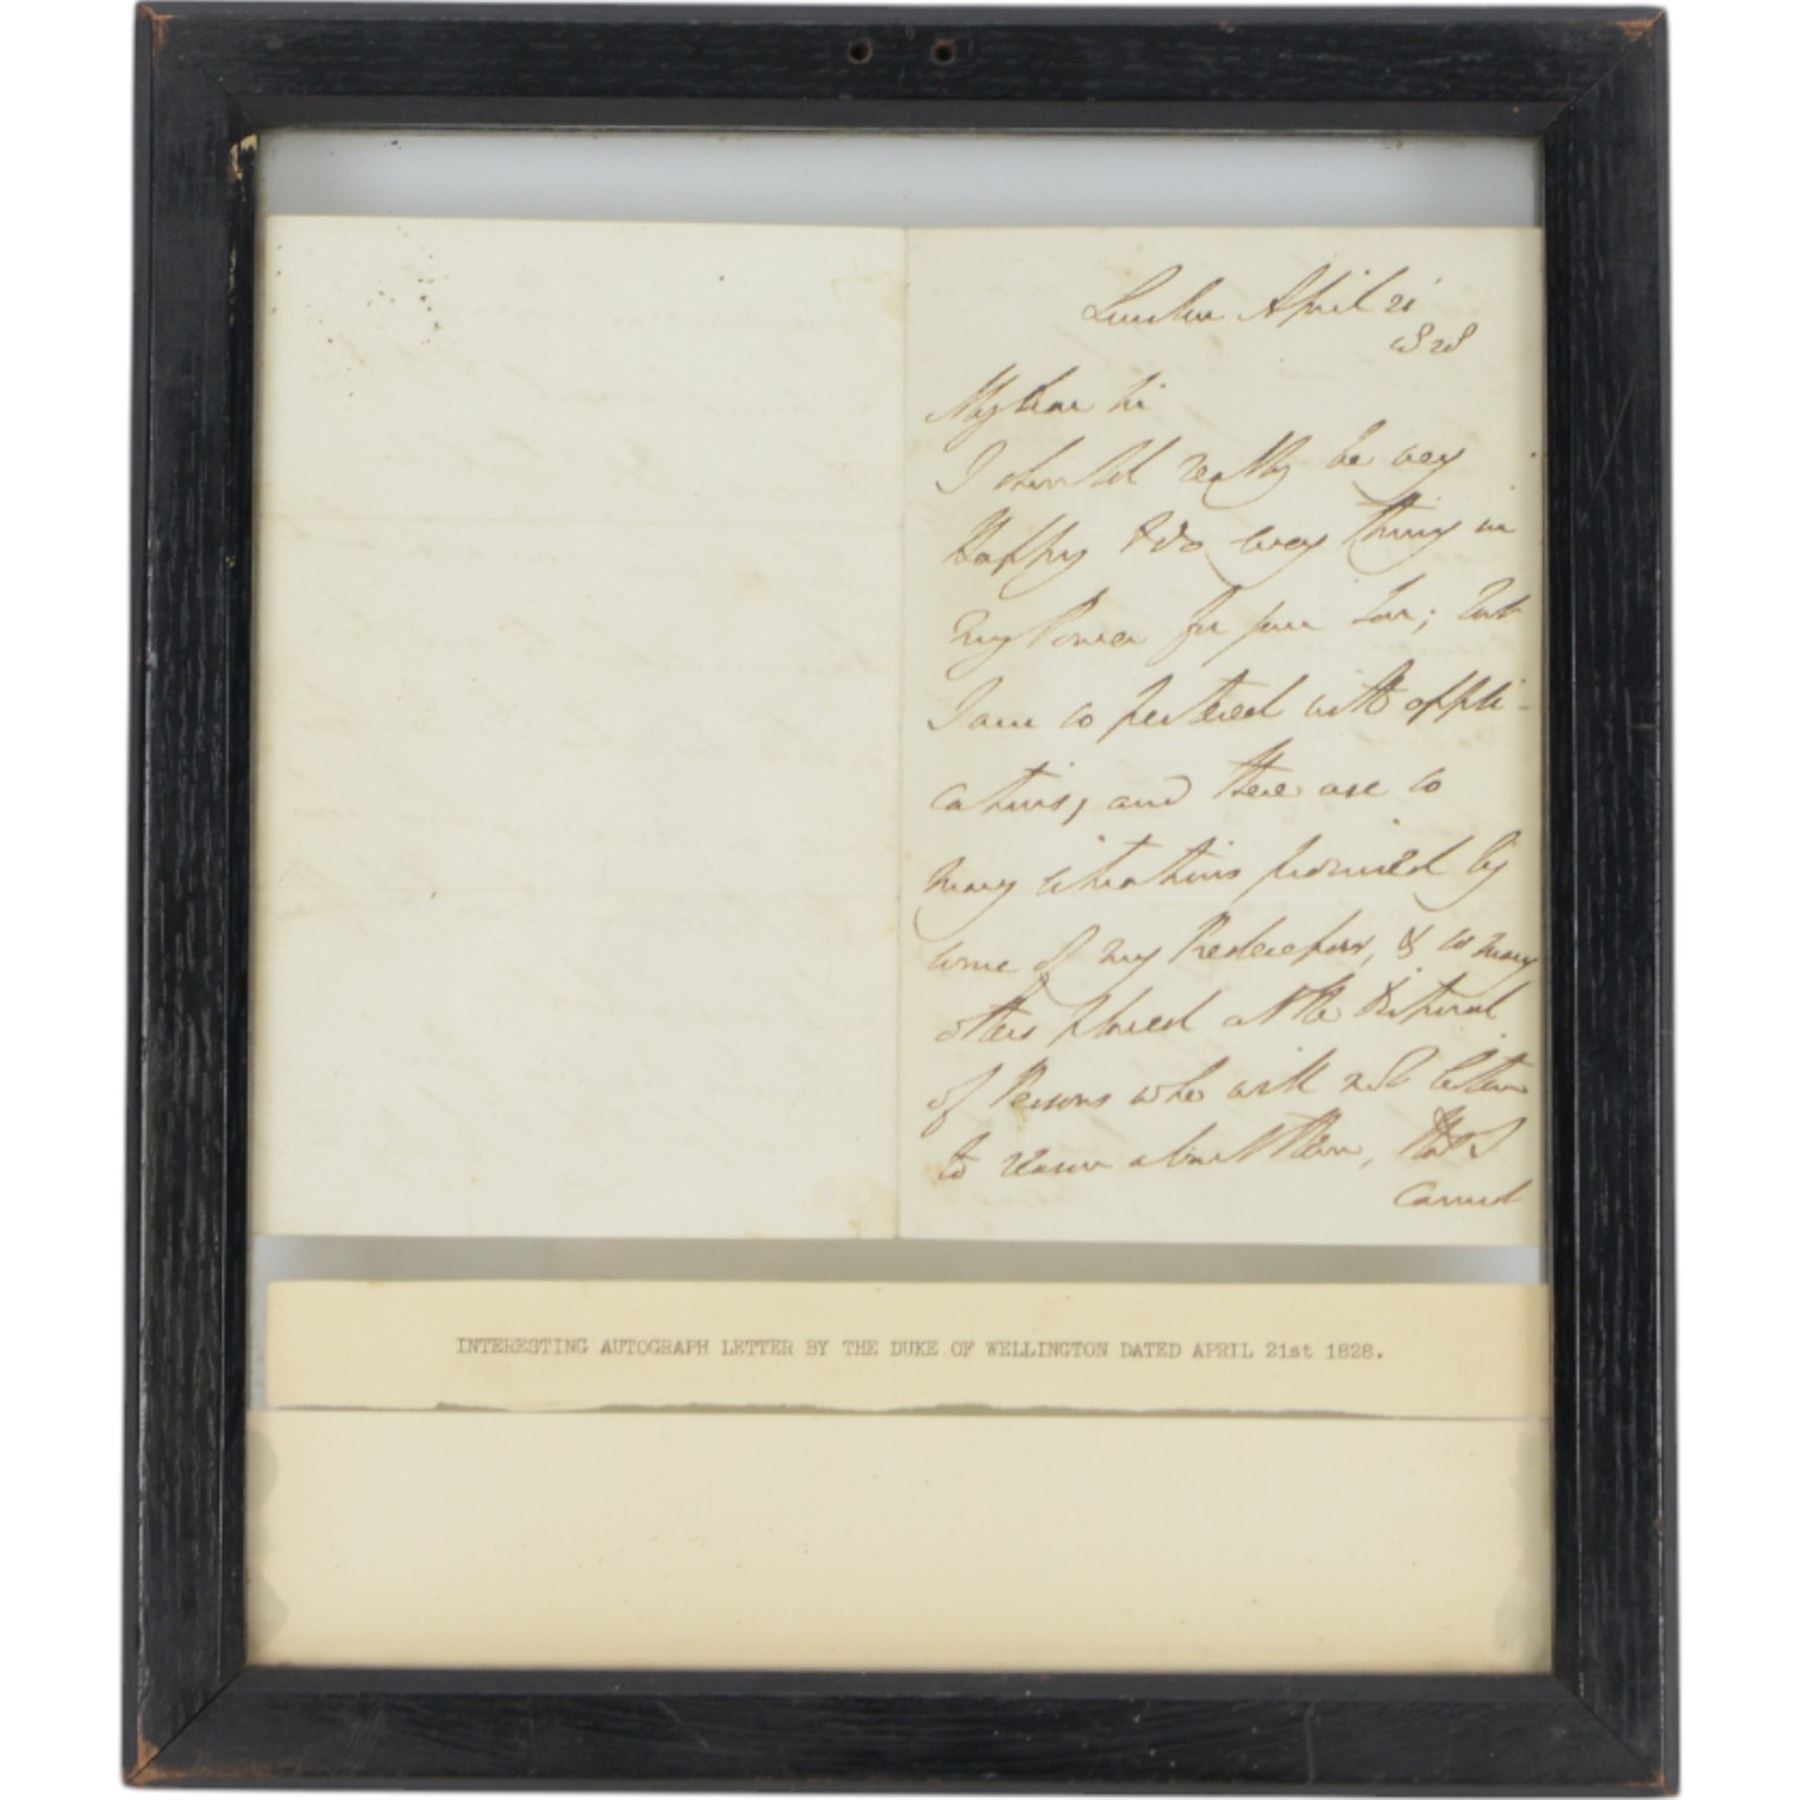 London April 21
1828
My dear Sir
I should really be very
Happy to do every thing in
my Power for your Son; but
I am so pestered with appli-
cations, and there are so
many situations promised by
some of my Predecessors, & so many
others placed at the disposal
of Persons who will not listen
to reason about them, that I
cannot
INTERESTING AUTOGRAPH LETTER BY THE DUKE OF WELLINGTON DATED APRIL 21st 1828.